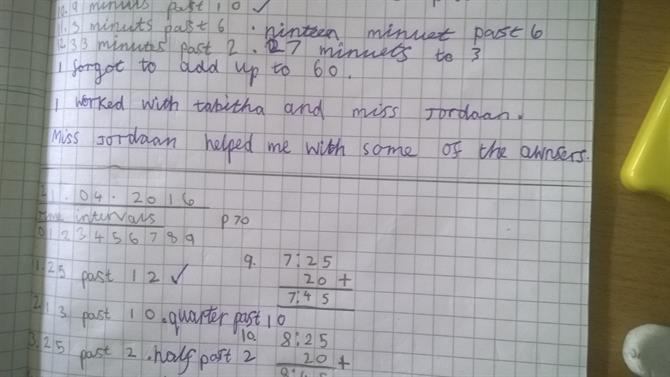 12. 9 minuts past 10 ✓
11. 3 minuts past 6 . ninteen minuet past 6
12. 33 minutes past 2 . 27 minuets to 3
I forgot to add up to 60.
I worked with tabitha and miss Jordaan.
Miss Jordaan helped me with some of the awnsers.
.04.2016
time intervals p70
0 1 2 3 4 5 6 7 8 9
1. 25 past 12 ✓ 9. 7:25
20 +
7:45
2. 13 past 10 . quarter past 10
3. 25 past 2 . half past 2 10. 8:25
20 +
8:45